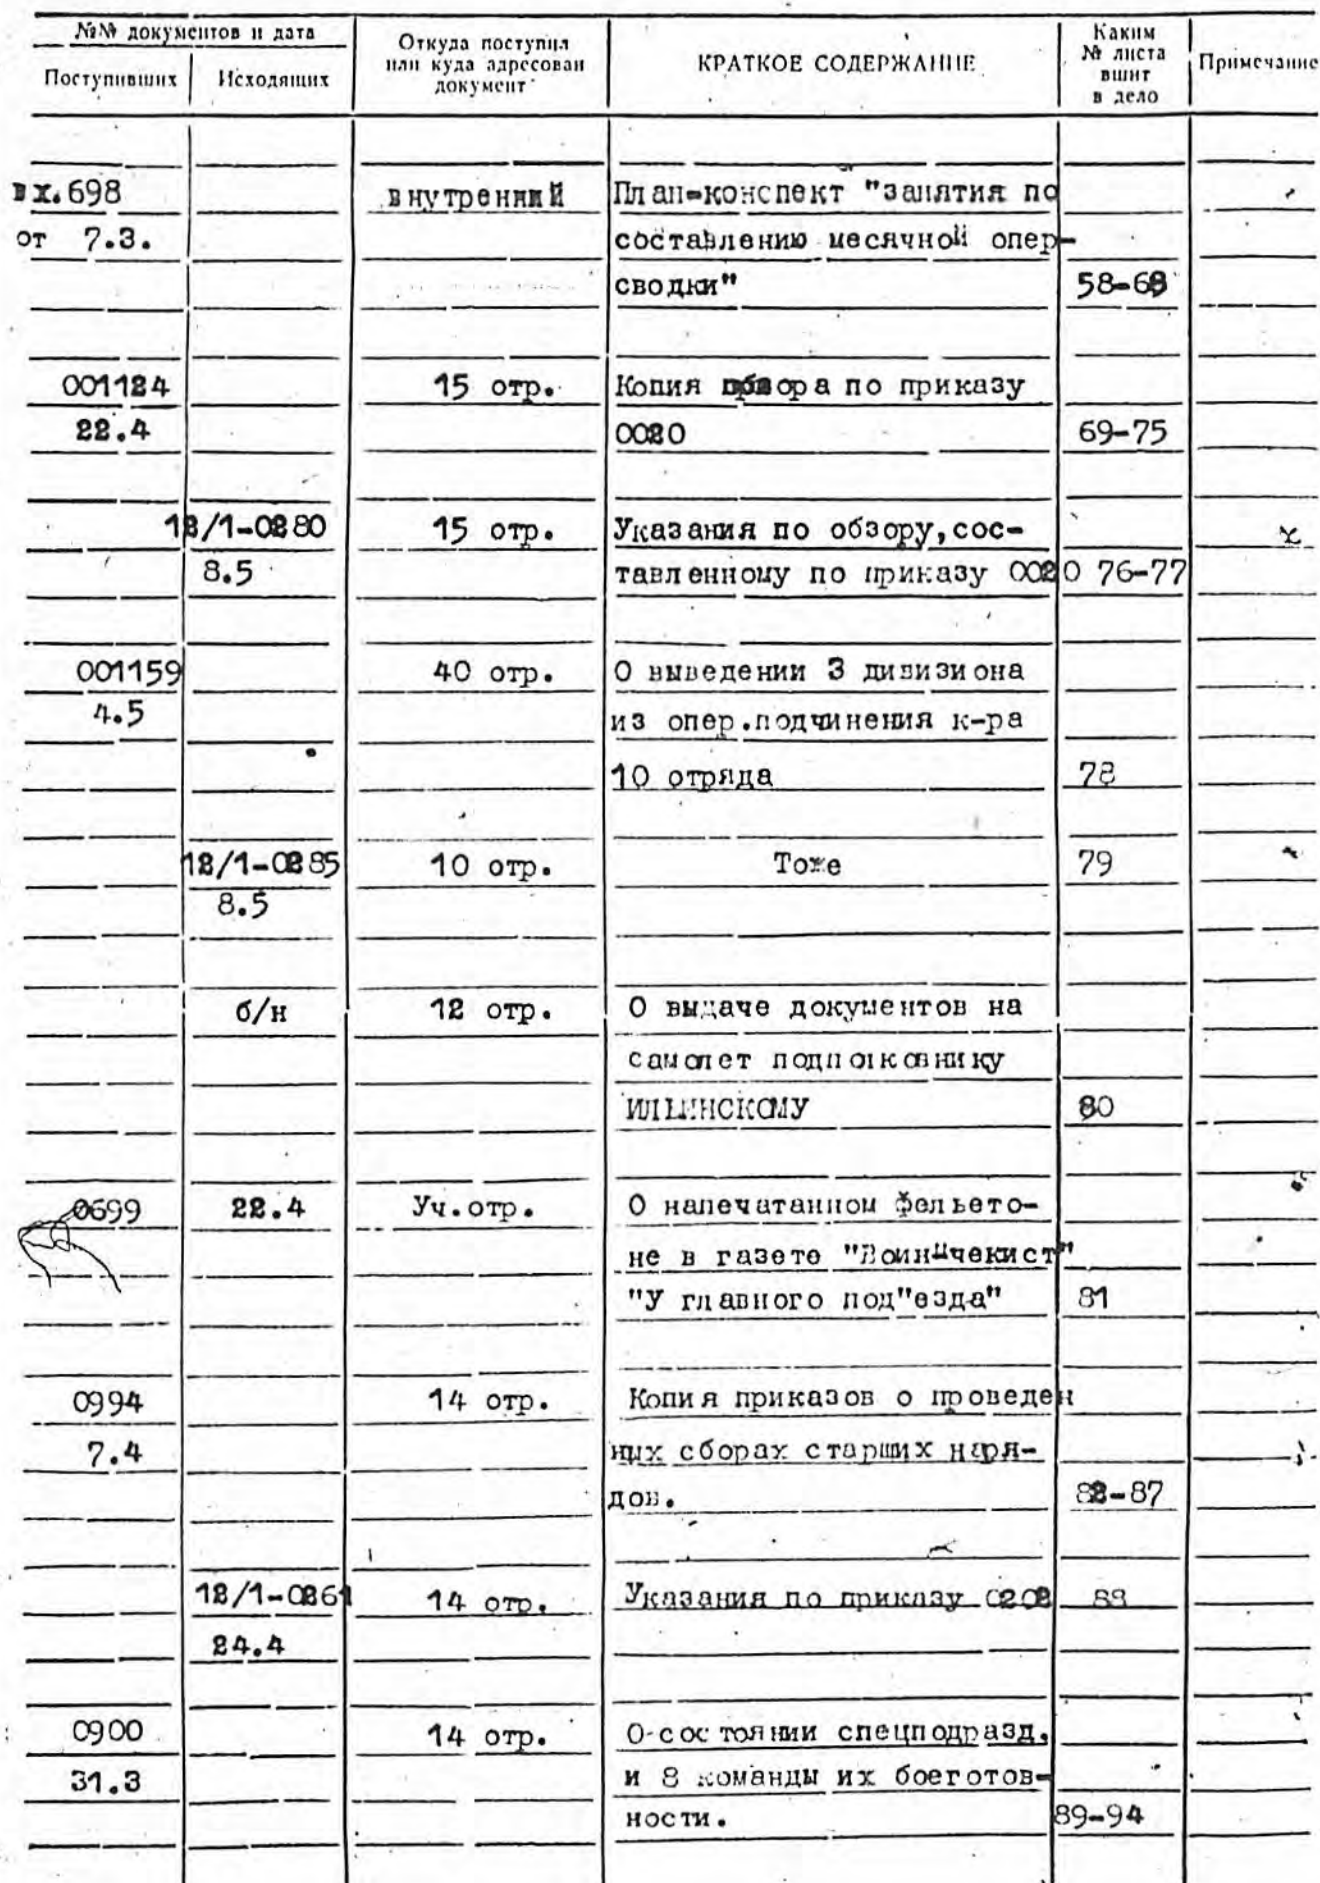 №№ документов и дата
Поступивших
Исходящих
Откуда поступил
или куда адресован
документ
КРАТКОЕ СОДЕРЖАНИЕ
Каким
№ листа
вшит
в дело
Примечание
вх.698 внутренний План-конспект "занятия по
от 7.3. составлению месячной опер-
сводки" 58-68
001124 15 отр. Копия обзора по приказу
22.4 0020 69-75
12/1-0280 15 отр. Указания по обзору,сос-
8.5 тавленному по приказу 0020 76-77
001159 40 отр. О выведении 3 дивизиона
4.5 из опер.подчинения к-ра
10 отряда 78
12/1-0285 10 отр. Тоже 79
8.5
б/н 12 отр. О выдаче документов на
самолет подполковнику
ИЛЬИНСКОМУ 80
0699 22.4 Уч.отр. О напечатанном фельето-
не в газете "Воин-чекист"
"У главного под"езда" 81
0994 14 отр. Копия приказов о проведен
7.4 ных сборах старших наря-
дов. 82-87
12/1-0261 14 отр. Указания по приказу 0202 88
24.4
0900 14 отр. О состоянии спецподразд.
31.3 и 8 команды их боеготов-
ности. 89-94